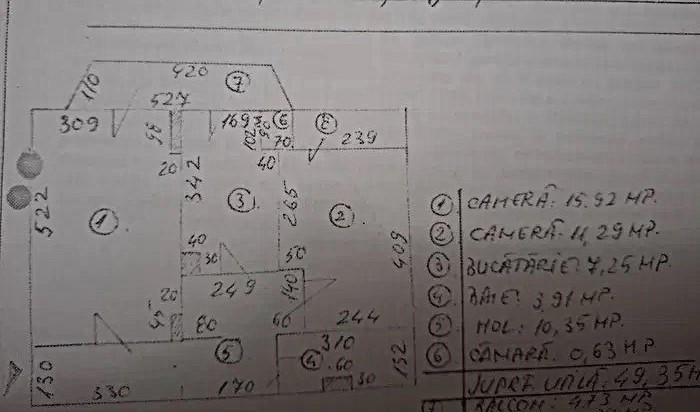 420
7
110
527
309
98
169
6
8
102
90
70
239
20
342
40
3
265
2
522
1
409
40
30
50
249
140
20
45
80
60
244
5
310
4
60
30
152
130
330
170
1 CAMERĂ: 15.92 MP.
2 CAMERĂ: 11,29 MP.
3 BUCĂTĂRIE: 7,25 MP.
4 BAIE: 3,91 MP.
5 HOL: 10,35 MP.
6 CĂMARĂ: 0,63 MP
SUPRF. UTILĂ: 49,35
7 BALCON: 4,73 MP